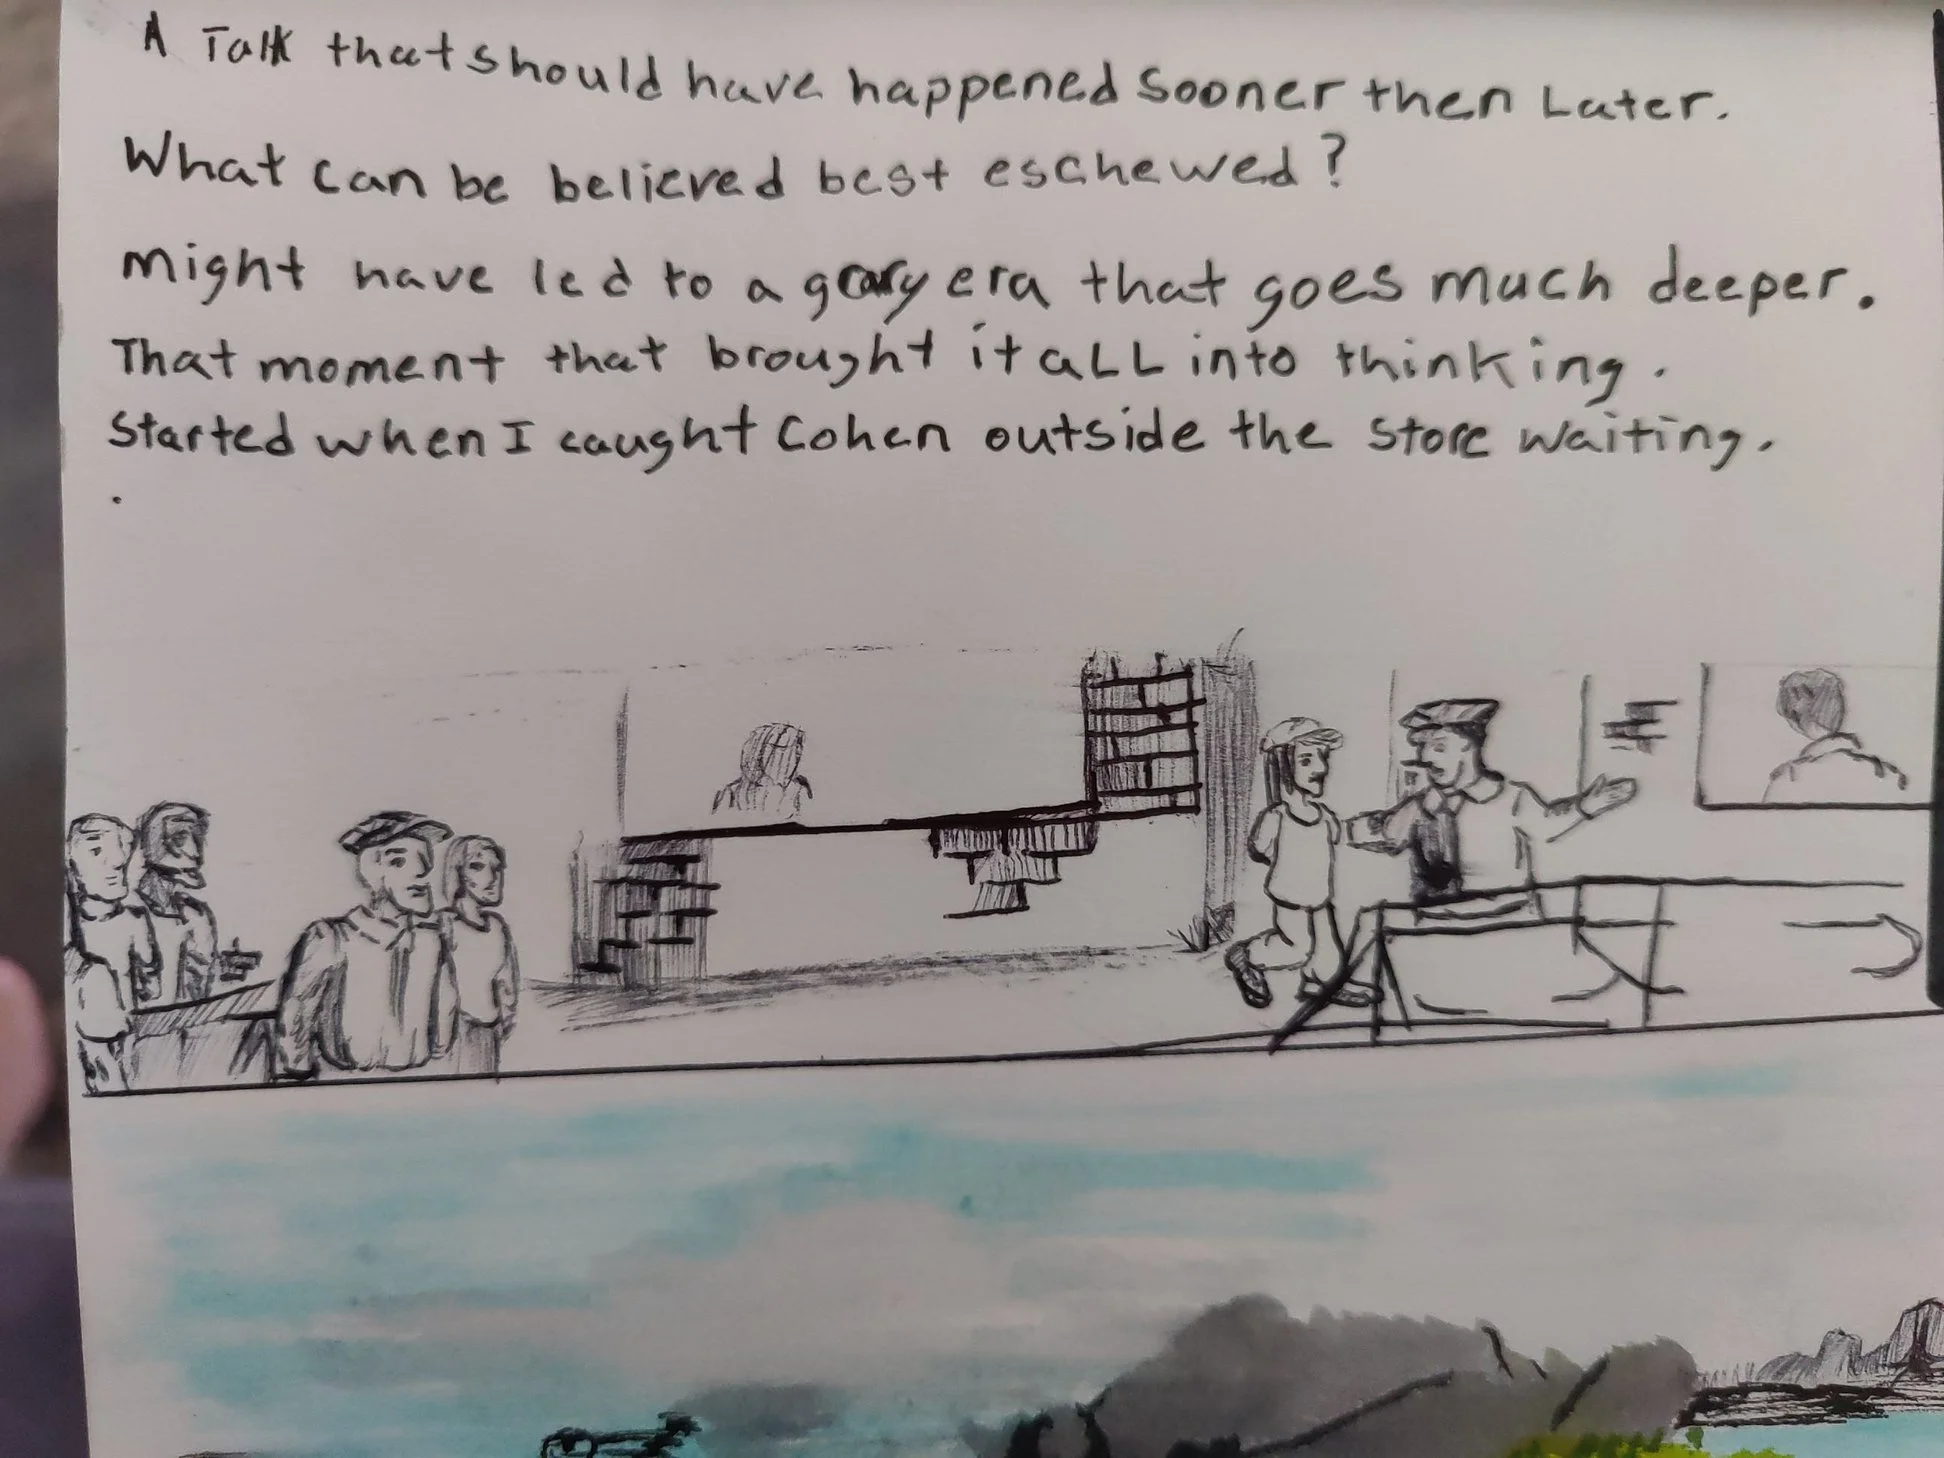 A Talk that should have happened sooner then Later.
What can be believed best eschewed?
might have led to a gray era that goes much deeper.
That moment that brought it aLL into thinking.
Started when I caught Cohen outside the store waiting.